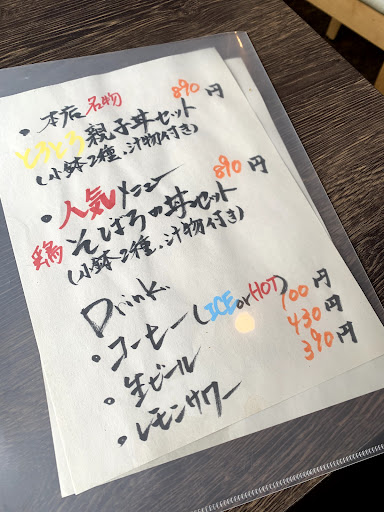 ・本店名物 890円
とろとろ親子丼セット
(小鉢2種、汁物付き)
・人気メニュー 890円
鶏そぼろ丼セット
(小鉢2種、汁物付き)
Drink.
・コーヒー(ICE or HOT) 100円
・生ビール 430円
・レモンサワー 390円